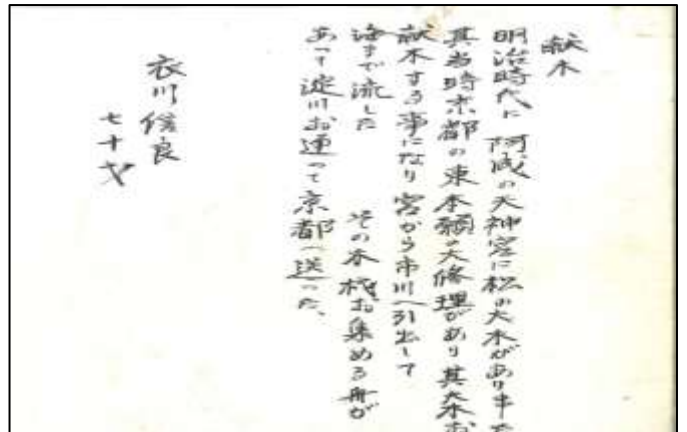 献木
明治時代に阿成の天神宮に松の大木があり中た
其当時京都の東本願の大修理があり其大木お
献木する事になり宮から市川へ引出して
海まで流した　その木材お集める舟が
あって淀川お通って京都へ送った、
衣川信良
七十才